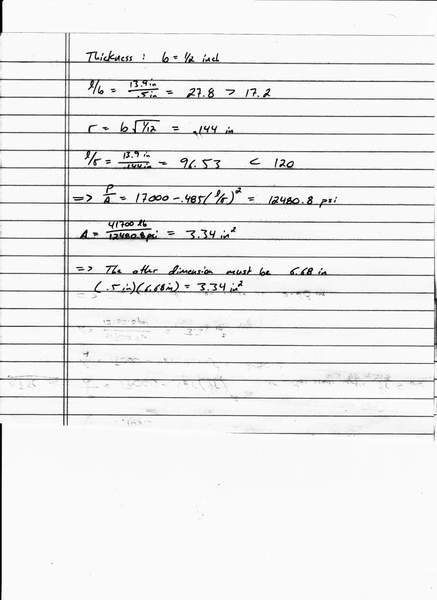 Thickness : b = 1/2 inch
l/b = 13.9 in/.5 in = 27.8 > 17.2
r = b√1/12 = .144 in
l/r = 13.9 in/.144 in = 96.53 < 120
=> P/A = 17000 - .485(l/r)² = 12480.8 psi
A = 41700 lb/12480.8 psi = 3.34 in²
=> The other dimension must be 6.68 in
(.5 in)(6.68 in) = 3.34 in²